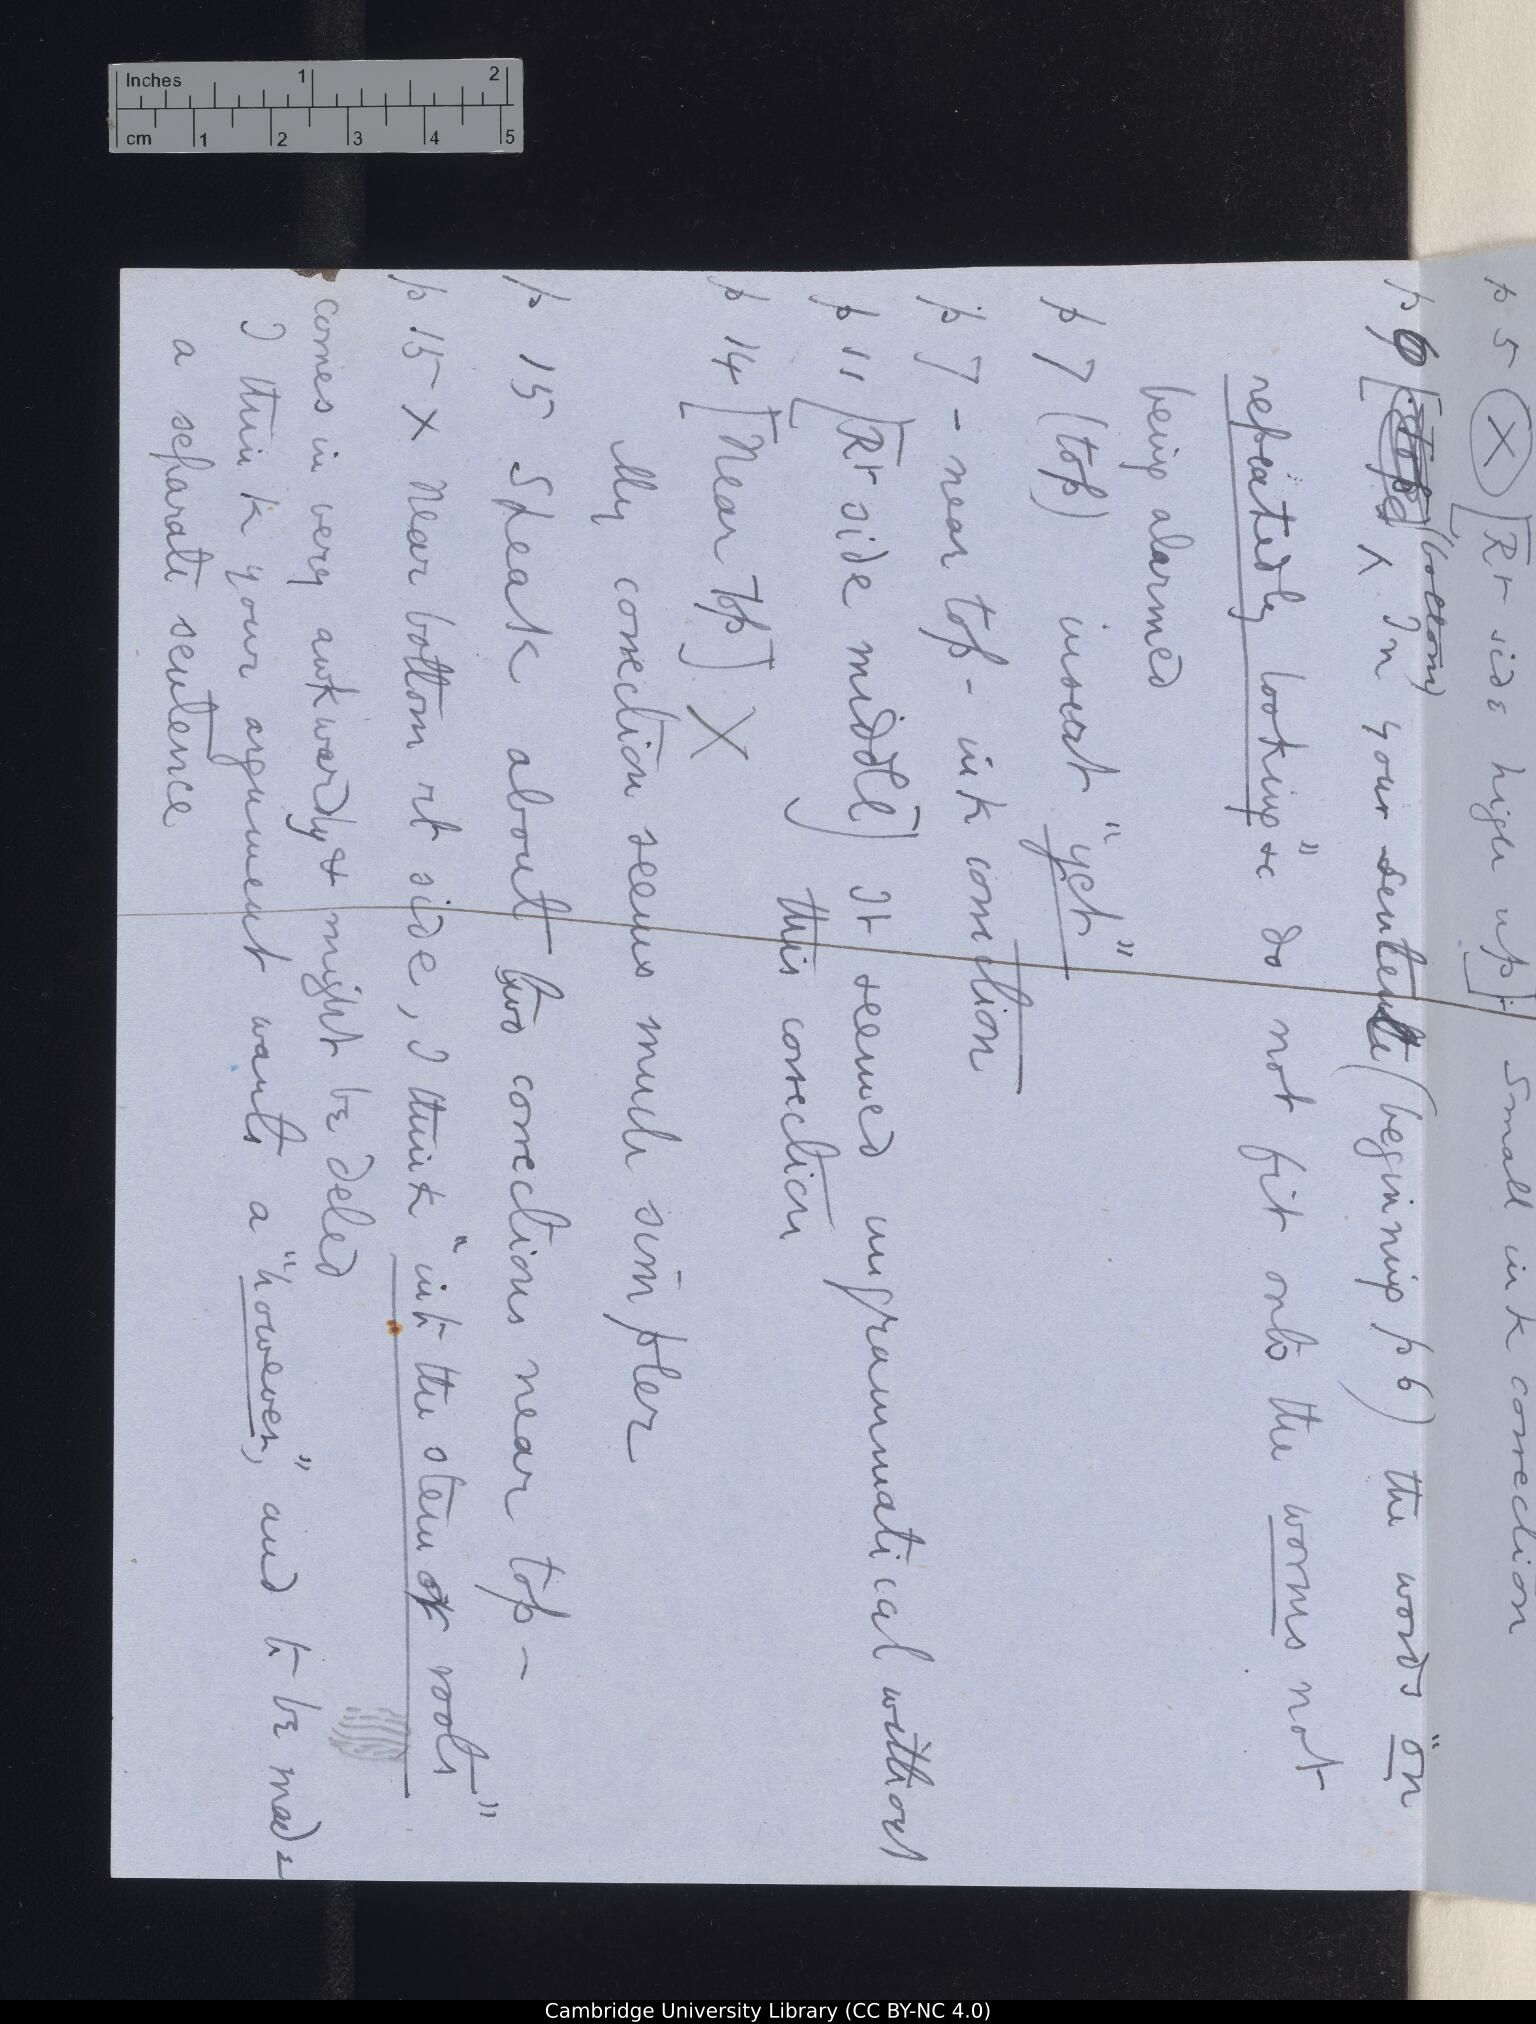 p 5 X [Rt side high up]. Small ink correction
p 6 (bottom) X In your sentence (beginning p 6) the words "on
repeatedly looking" &c do not fit onto the worms not
being alarmed
p 7 (top) insert "yet"
p 7 - near top - ink correction
p 11 [Rt side middle] It seemed ungrammatical without
this correction
p 14 [Near top] X
My correction seems much simpler
p 15 Speak about two corrections near top -
p 15 X Near bottom rt side, I think "into the stem or roots"
comes in very awkwardly & might be deled
I think your argument wants a "however", and to be made
a separate sentence
Inches 1 2
cm 1 2 3 4 5
Cambridge University Library (CC BY-NC 4.0)